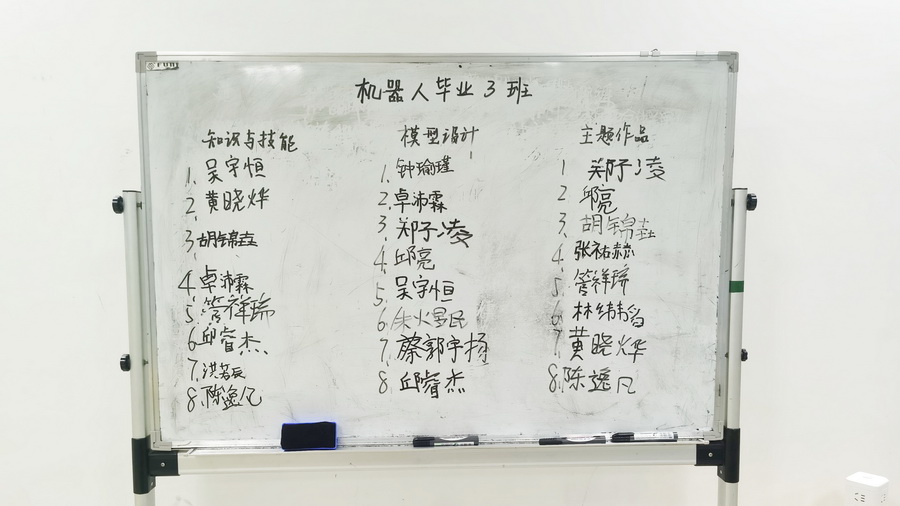 机器人毕业3班
知识与技能
1. 吴宇恒
2. 黄晓烨
3. 胡锦垚
4. 卓沛霖
5. 管祥瑞
6. 邱睿杰
7. 洪若辰
8. 陈逸凡
模型设计
1. 钟瑜瑾
2. 卓沛霖
3. 郑子凌
4. 邱亮
5. 吴宇恒
6. 民
7. 蔡郭宇扬
8. 邱睿杰
主题作品
1 郑子凌
2 邱亮
3. 胡锦垚
4. 张祐赫
5 管祥瑞
6. 林纬韬
7 黄晓烨
8. 陈逸凡